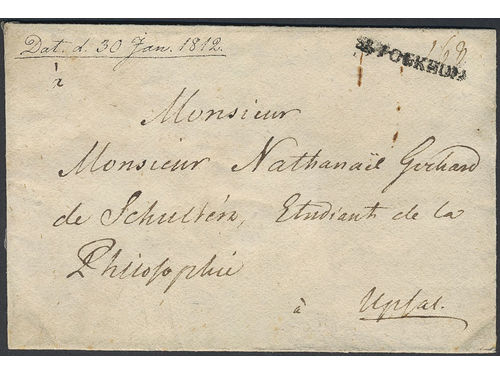 Dat. d. 30 Jan. 1812.
STOCKHOLM
à
Monsieur
Monsieur Nathanaël Gerhard
de Schultén, Etudiant de la
Philosophie
à Upsal.